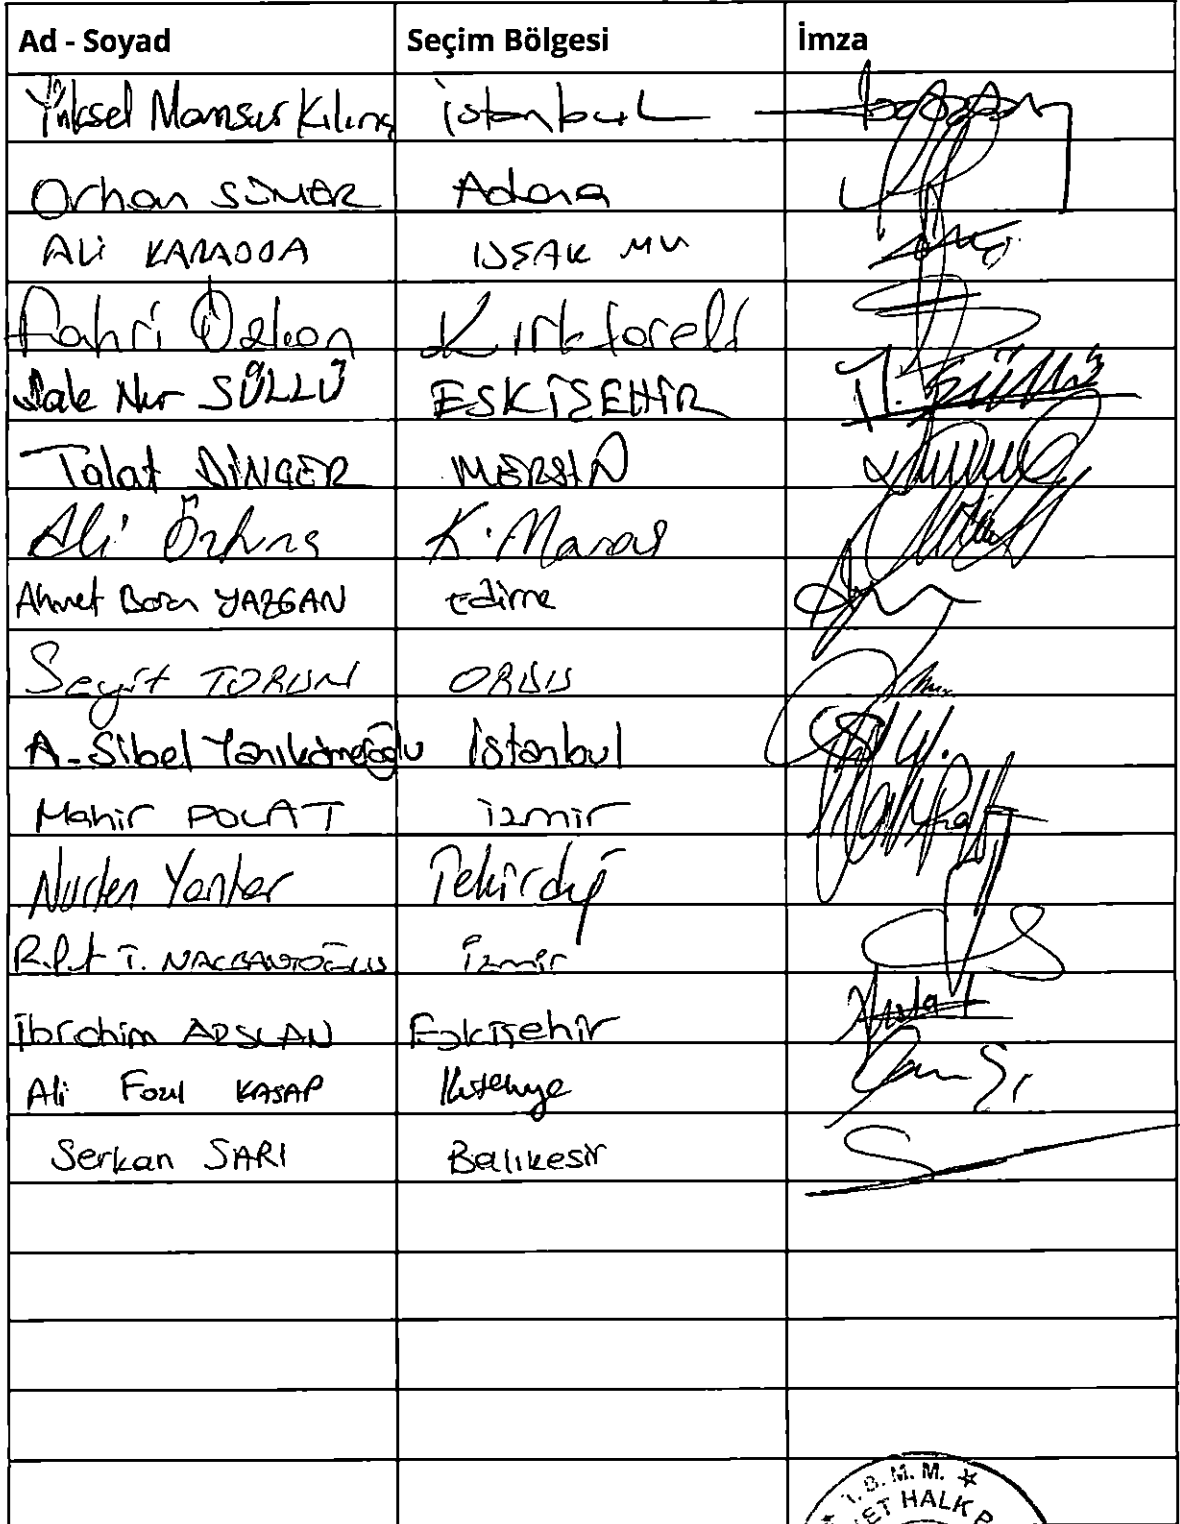 Ad - Soyad Seçim Bölgesi İmza
Yüksel Mansur Kılınç İstanbul
Orhan SÜMER Adana
ALİ KARAOBA UŞAK MV
Fahri Özkan Kırklareli
Jale Nur SÜLLÜ ESKİŞEHİR
Talat DİNÇER MERSİN
Ali Öztunç K. Maraş
Ahmet Baran YAZGAN Edirne
Seyit TORUN ORDU
A. Sibel Yanıkömeroğlu İstanbul
Mahir POLAT İzmir
Nurten Yontar Tekirdağ
R.f.t T. NALBANTOĞLU İzmir
İbrahim ARSLAN Eskişehir
Ali Fazıl KASAP Kütahya
Serkan SARI Balıkesir
T.B.M.M.
ET HALK P